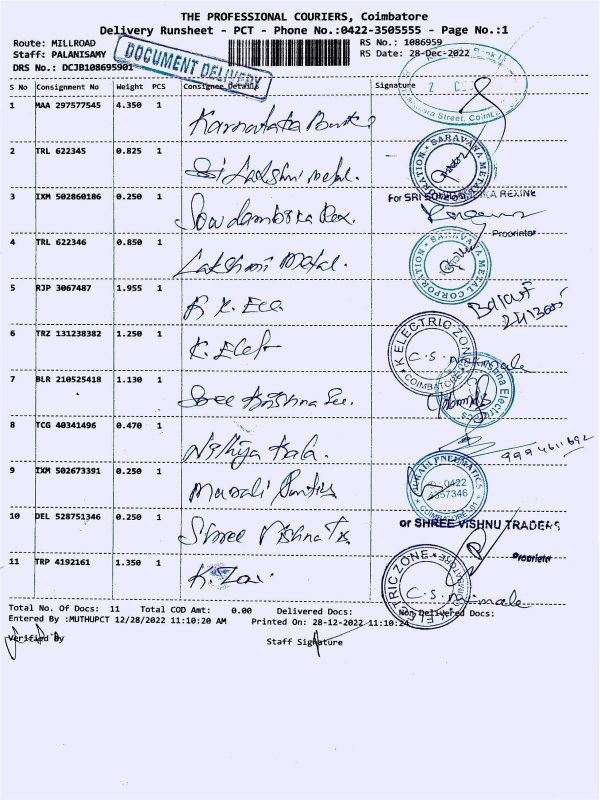 THE PROFESSIONAL COURIERS, Coimbatore
Delivery Runsheet - PCT - Phone No.:0422-3505555 - Page No.:1
Route: MILLROAD RS No.: 1086959
Staff: PALANISAMY RS Date: 28-Dec-2022
DRS No.: DCJB108695901
DOCUMENT DELIVERY
S No Consignment No Weight PCS Consignee Details Signature
1 MAA 297577545 4.350 1 Karnataka Bank
2 TRL 622345 0.825 1 Sri Lakshmi metal.
SARAVANA METAL CORPORATION
3 IXM 502860186 0.250 1 Sowdambika Rex.
For SRI REXINE
Proprietor
4 TRL 622346 0.850 1 Lakshmi Metal.
SARAVANA METAL CORPORATION
5 RJP 3067487 1.955 1
6 TRZ 131238382 1.250 1 K. Elect
K ELECTRIC ZONE
COIMBATORE
C.S.
7 BLR 210525418 1.130 1 Sree Krishna
8 TCG 40341496 0.470 1 Nithiya Kala.
9994611692
9 IXM 502673391 0.250 1 Murali
MURALI PNEUMATICS
0422
4357346
10 DEL 528751346 0.250 1 Shree Vishna
or SHREE VISHNU TRADERS
Proprietor
11 TRP 4192161 1.350 1
K ELECTRIC ZONE
C.S.
Total No. Of Docs: 11 Total COD Amt: 0.00 Delivered Docs: Non Delivered Docs:
Entered By :MUTHUPCT 12/28/2022 11:10:20 AM Printed On: 28-12-2022 11:10:24
Verified By Staff Signature